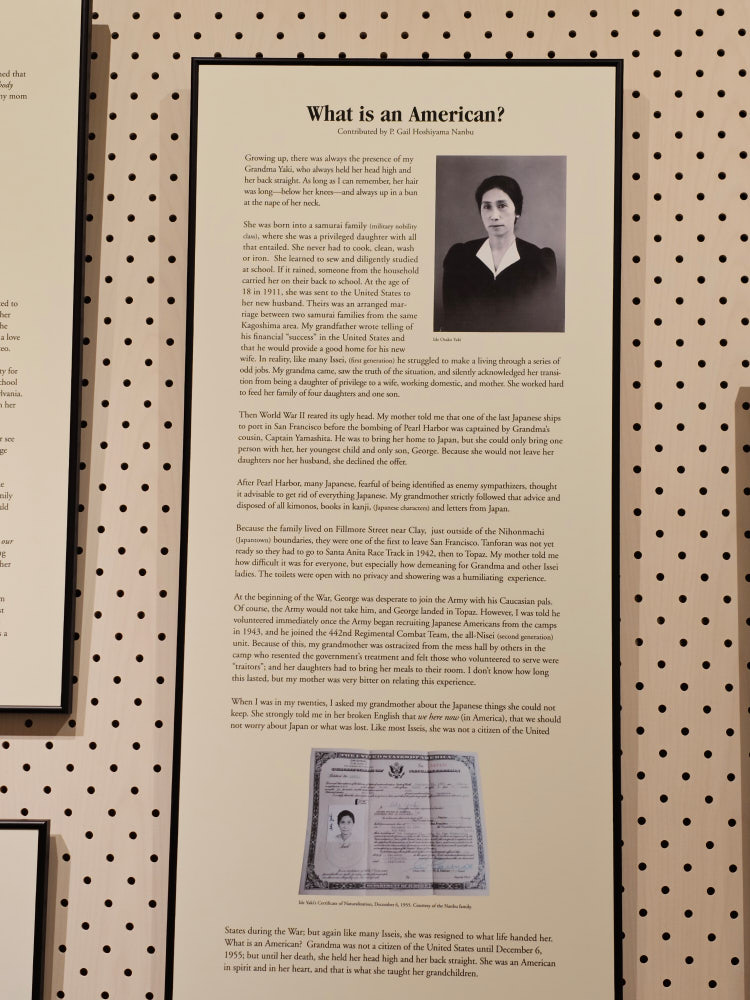 ned that
body
my mom
ted to
her
he
a love
eo.
ty for
chool
lvania.
n her
r see
ge
e
mily
uld
our
ng
ther
m
st
s a
What is an American?
Contributed by P. Gail Hoshiyama Nanbu
Growing up, there was always the presence of my
Grandma Yaki, who always held her head high and
her back straight. As long as I can remember, her hair
was long—below her knees—and always up in a bun
at the nape of her neck.
She was born into a samurai family (military nobility
class), where she was a privileged daughter with all
that entailed. She never had to cook, clean, wash
or iron. She learned to sew and diligently studied
at school. If it rained, someone from the household
carried her on their back to school. At the age of
18 in 1911, she was sent to the United States to
her new husband. Theirs was an arranged mar-
riage between two samurai families from the same
Kagoshima area. My grandfather wrote telling of
his financial "success" in the United States and
that he would provide a good home for his new
Ide Otsuka Yaki
wife. In reality, like many Issei, (first generation) he struggled to make a living through a series of
odd jobs. My grandma came, saw the truth of the situation, and silently acknowledged her transi-
tion from being a daughter of privilege to a wife, working domestic, and mother. She worked hard
to feed her family of four daughters and one son.
Then World War II reared its ugly head. My mother told me that one of the last Japanese ships
to port in San Francisco before the bombing of Pearl Harbor was captained by Grandma's
cousin, Captain Yamashita. He was to bring her home to Japan, but she could only bring one
person with her, her youngest child and only son, George. Because she would not leave her
daughters nor her husband, she declined the offer.
After Pearl Harbor, many Japanese, fearful of being identified as enemy sympathizers, thought
it advisable to get rid of everything Japanese. My grandmother strictly followed that advice and
disposed of all kimonos, books in kanji, (Japanese characters) and letters from Japan.
Because the family lived on Fillmore Street near Clay, just outside of the Nihonmachi
(Japantown) boundaries, they were one of the first to leave San Francisco. Tanforan was not yet
ready so they had to go to Santa Anita Race Track in 1942, then to Topaz. My mother told me
how difficult it was for everyone, but especially how demeaning for Grandma and other Issei
ladies. The toilets were open with no privacy and showering was a humiliating experience.
At the beginning of the War, George was desperate to join the Army with his Caucasian pals.
Of course, the Army would not take him, and George landed in Topaz. However, I was told he
volunteered immediately once the Army began recruiting Japanese Americans from the camps
in 1943, and he joined the 442nd Regimental Combat Team, the all-Nisei (second generation)
unit. Because of this, my grandmother was ostracized from the mess hall by others in the
camp who resented the government's treatment and felt those who volunteered to serve were
"traitors"; and her daughters had to bring her meals to their room. I don't know how long
this lasted, but my mother was very bitter on relating this experience.
When I was in my twenties, I asked my grandmother about the Japanese things she could not
keep. She strongly told me in her broken English that we here now (in America), that we should
not worry about Japan or what was lost. Like most Isseis, she was not a citizen of the United
Ide Yaki's Certificate of Naturalization, December 6, 1955. Courtesy of the Nanbu family.
States during the War; but again like many Isseis, she was resigned to what life handed her.
What is an American? Grandma was not a citizen of the United States until December 6,
1955; but until her death, she held her head high and her back straight. She was an American
in spirit and in her heart, and that is what she taught her grandchildren.